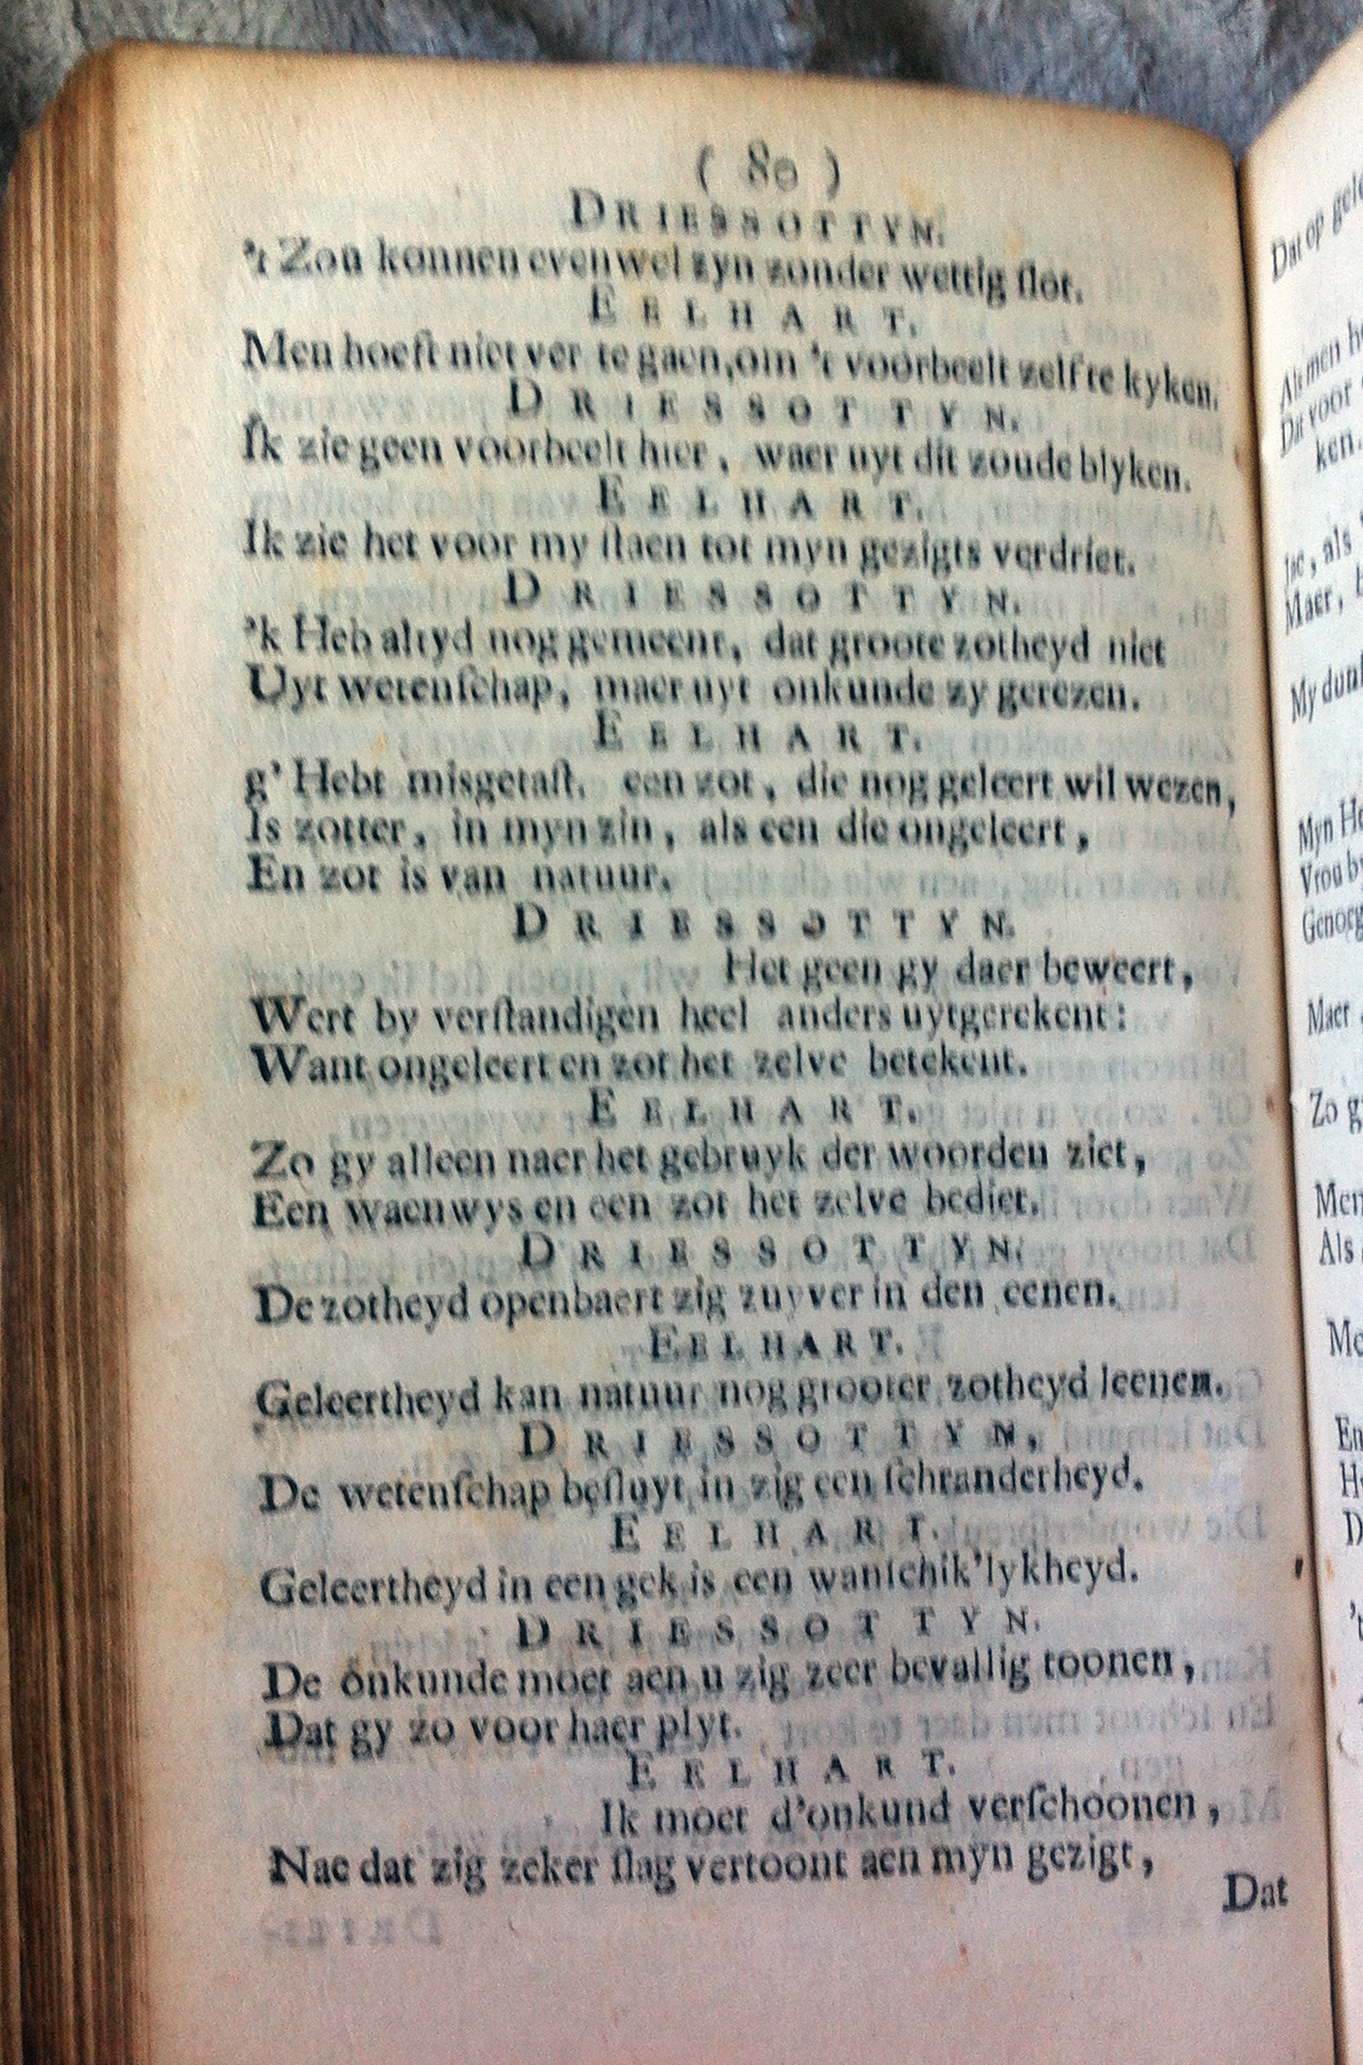 ( 80 )
DRIESSOTTYN.
't Zou konnen evenwel zyn zonder wettig slot.
EELHART.
Men hoeft niet ver te gaen, om 't voorbeelt zelf te kyken.
DRIESSOTTYN.
Ik zie geen voorbeelt hier, waer uyt dit zoude blyken.
EELHART.
Ik zie het voor my ſtaen tot myn gezigts verdriet.
DRIESSOTTYN.
'k Heb altyd nog gemeent, dat groote zotheyd niet
Uyt wetenſchap, maer uyt onkunde zy gerezen.
EELHART.
g' Hebt misgetaſt. een zot, die nog geleert wil wezen,
Is zotter, in myn zin, als een die ongeleert,
En zot is van natuur.
DRIESSOTTYN.
Het geen gy daer beweert,
Wert by verſtandigen heel anders uytgerekent:
Want ongeleert en zot het zelve betekent.
EELHART.
Zo gy alleen naer het gebruyk der woorden ziet,
Een waenwys en een zot het zelve bediet.
DRIESSOTTYN.
De zotheyd openbaert zig zuyver in den eenen.
EELHART.
Geleertheyd kan natuur nog grooter zotheyd leenen.
DRIESSOTTYN.
De wetenſchap beſluyt in zig een ſchranderheyd.
EELHART.
Geleertheyd in een gek is een wanſchik'lykheyd.
DRIESSOTTYN.
De onkunde moet aen u zig zeer bevallig toonen,
Dat gy zo voor haer plyt.
EELHART.
Ik moet d'onkund verſchoonen,
Nae dat zig zeker ſlag vertoont aen myn gezigt,
Dat
Dat op
Als men
Dat voor
ken.
als
Maer,
Myn
Vrou
Maer
Zo
Men
Als